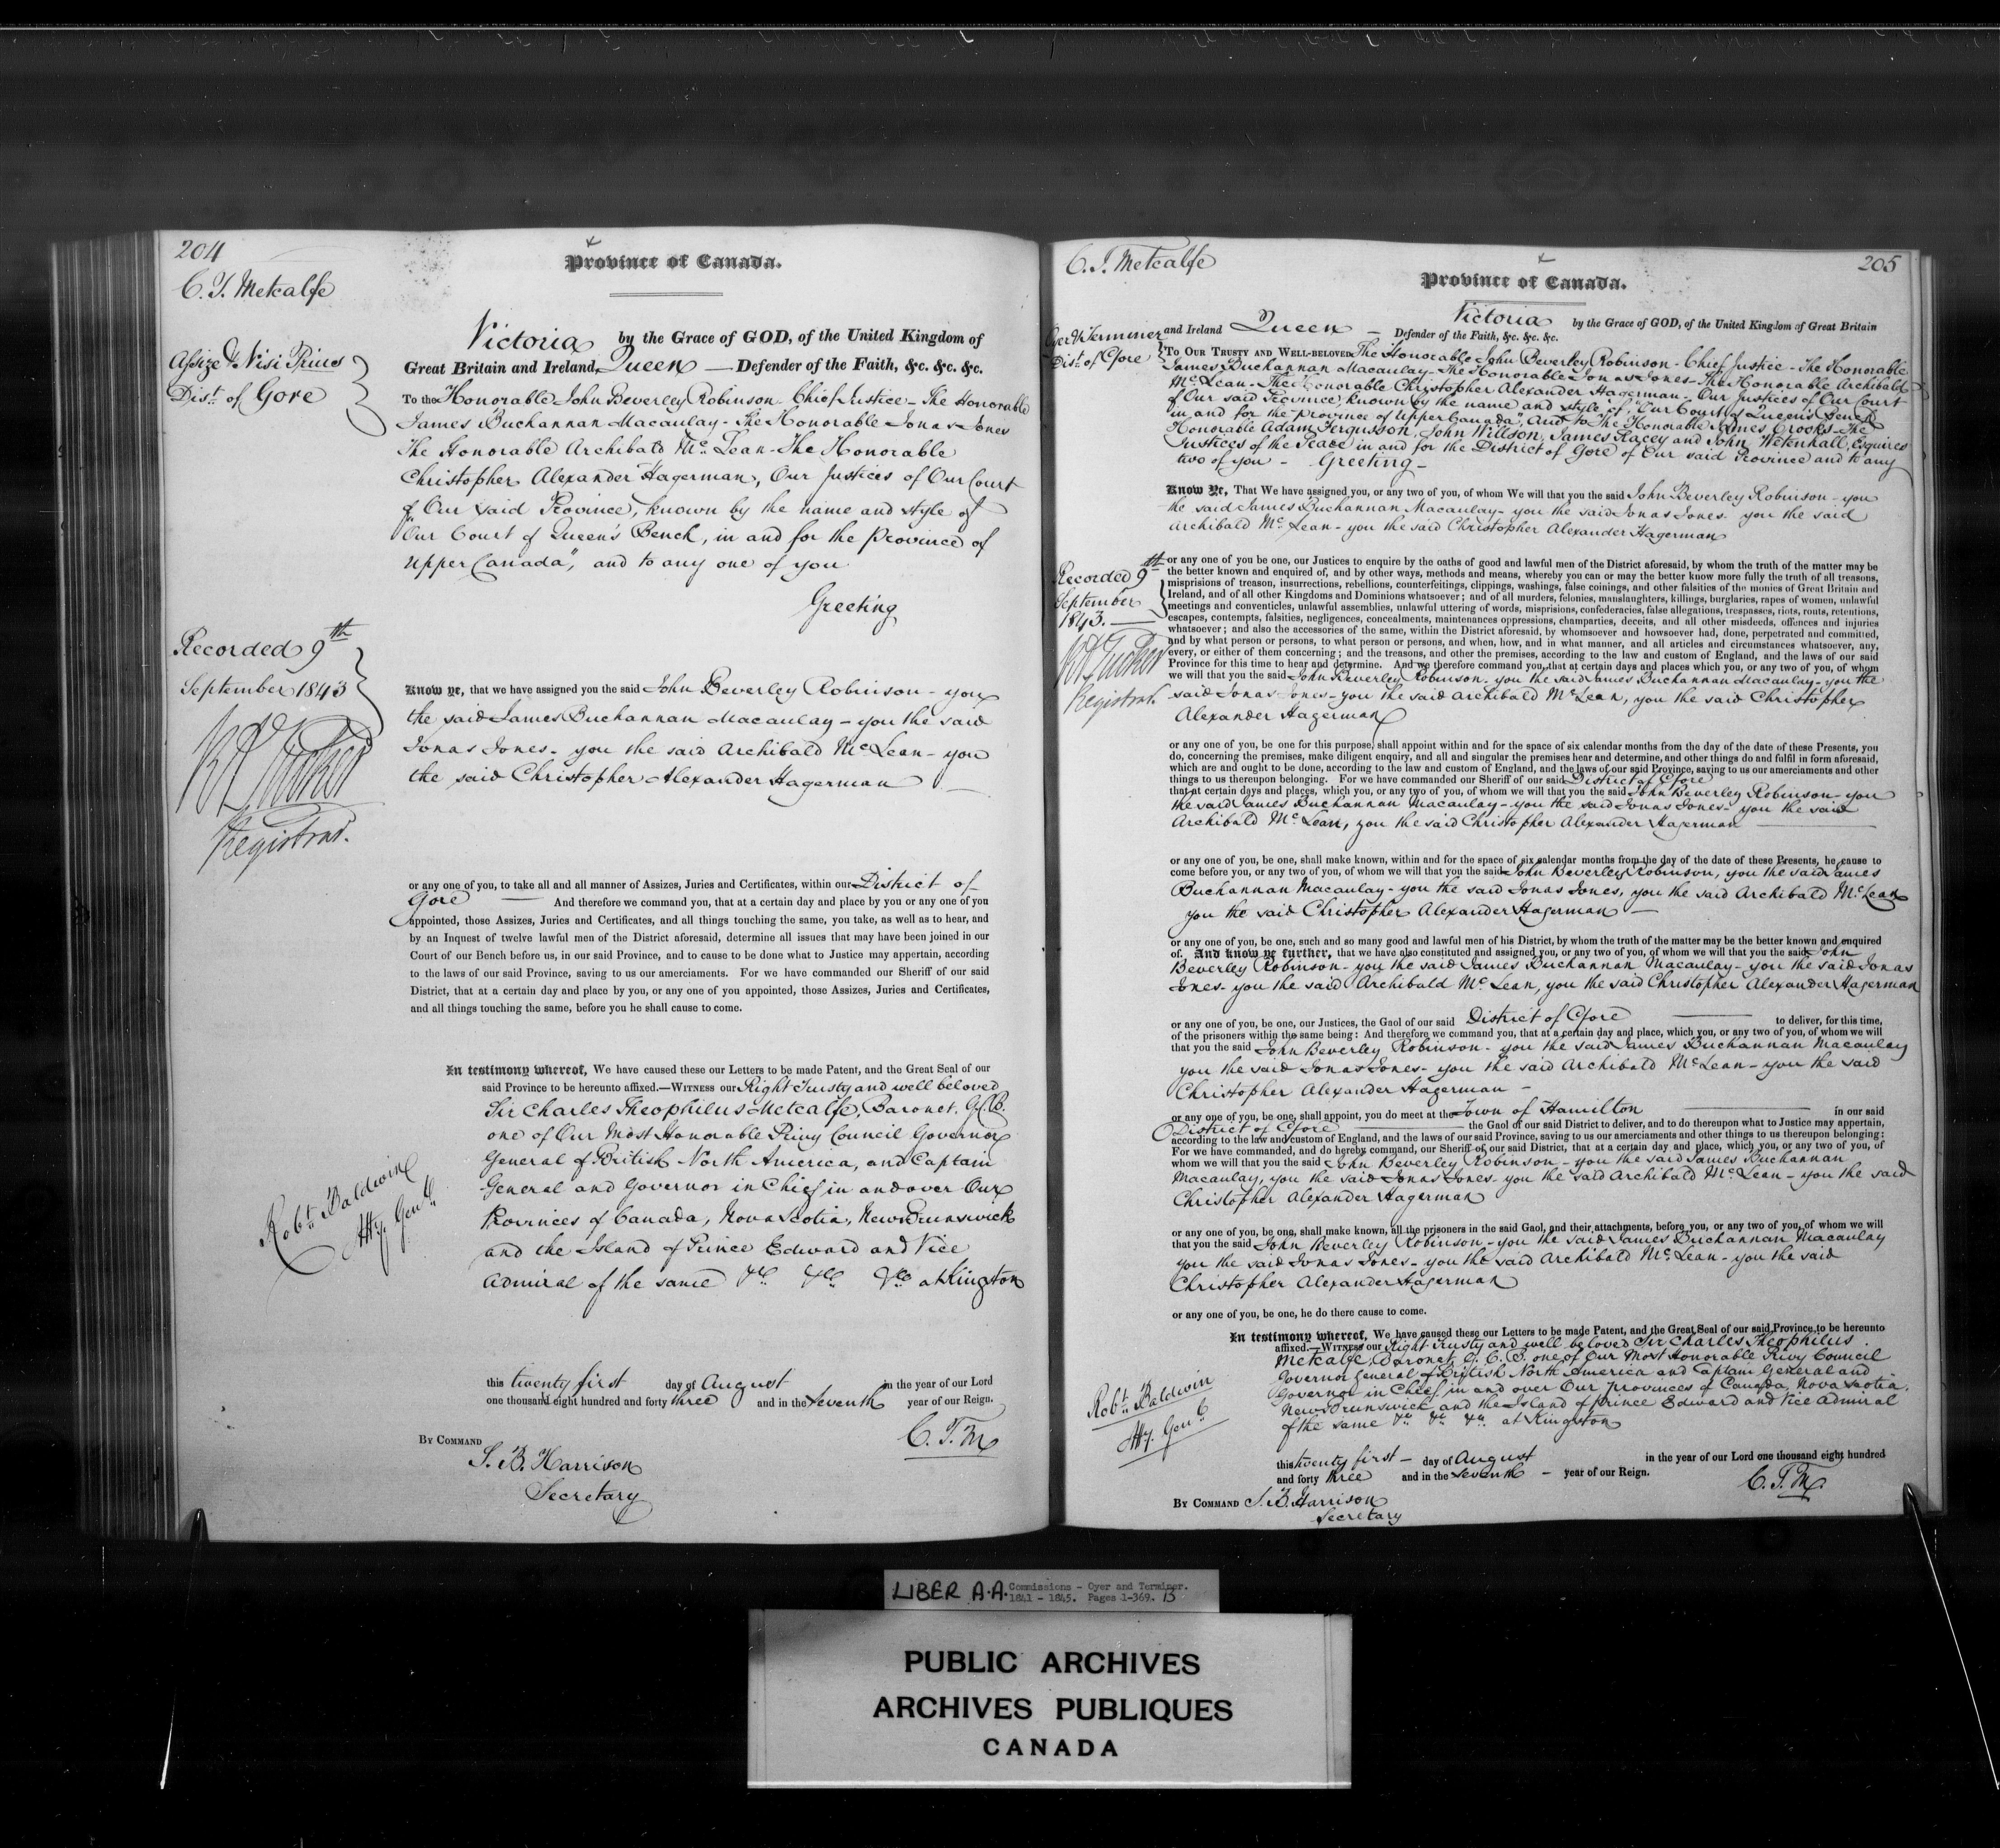 204
C. T. Metcalfe
Province of Canada.
Assize & Nisi Prius
Dist. of Gore
Victoria by the Grace of GOD, of the United Kingdom of
Great Britain and Ireland, Queen — Defender of the Faith, &c. &c. &c.
To the Honorable John Beverley Robinson Chief Justice - The Honorable
James Buchannan Macaulay - The Honorable Jonas Jones
The Honorable Archibald Mc Lean - The Honorable
Christopher Alexander Hagerman, Our Justices of Our Court
of Our said Province, known by the name and style of
"Our Court of Queen's Bench, in and for the Province of
Upper Canada", and to any one of you
Greeting
Recorded 9th
September 1843
Registrar.
Know ye, that we have assigned you the said John Beverley Robinson - you
the said James Buchannan Macaulay - you the said
Jonas Jones - you the said Archibald McLean - you
the said Christopher Alexander Hagerman —
or any one of you, to take all and all manner of Assizes, Juries and Certificates, within our District of
Gore — And therefore we command you, that at a certain day and place by you or any one of you
appointed, those Assizes, Juries and Certificates, and all things touching the same, you take, as well as to hear, and
by an Inquest of twelve lawful men of the District aforesaid, determine all issues that may have been joined in our
Court of our Bench before us, in our said Province, and to cause to be done what to Justice may appertain, according
to the laws of our said Province, saving to us our amerciaments. For we have commanded our Sheriff of our said
District, that at a certain day and place by you, or any one of you appointed, those Assizes, Juries and Certificates,
and all things touching the same, before you he shall cause to come.
In testimony whereof, We have caused these our Letters to be made Patent, and the Great Seal of our
said Province to be hereunto affixed.—WITNESS our Right Trusty and well beloved
Sir Charles Theophilus Metcalfe, Baronet, G.C.B.
one of Our Most Honorable Privy Council Governor
General of British North America, and Captain
General and Governor in Chief in and over Our
Provinces of Canada, Nova Scotia, New Brunswick
and the Island of Prince Edward and Vice
Admiral of the same &c &c &c at Kingston
Robt. Baldwin
Atty. Genl.
this twenty first day of August in the year of our Lord
one thousand eight hundred and forty three and in the Seventh year of our Reign.
C. T. M
BY COMMAND
S. B. Harrison
Secretary
C. T. Metcalfe
205
Province of Canada.
Oyer & Terminer
Dist. of Gore
Victoria by the Grace of GOD, of the United Kingdom of Great Britain
and Ireland Queen — Defender of the Faith, &c. &c. &c.
TO OUR TRUSTY AND WELL-BELOVED The Honorable John Beverley Robinson - Chief Justice - The Honorable
James Buchannan Macaulay - The Honorable Jonas Jones - The Honorable Archibald
Mc Lean - The Honorable Christopher Alexander Hagerman - Our Justices of Our Court
of Our said Province, known by the name and style of, "Our Court of Queen's Bench
in and for the province of Upper Canada", And to The Honorable James Crooks - The
Honorable Adam Fergusson, John Willson, James Racey and John Wetenhall, Esquires
Justices of the Peace in and for the District of Gore of Our said Province and to any
two of you - Greeting -
Know Ye, That We have assigned you, or any two of you, of whom We will that you the said John Beverley Robinson - you
the said James Buchannan Macaulay - you the said Jonas Jones. you the said
Archibald Mc Lean - you the said Christopher Alexander Hagerman
Recorded 9th
September
1843. —
Registrar.
or any one of you be one, our Justices to enquire by the oaths of good and lawful men of the District aforesaid, by whom the truth of the matter may be
the better known and enquired of, and by other ways, methods and means, whereby you can or may the better know more fully the truth of all treasons,
misprisions of treason, insurrections, rebellions, counterfeitings, clippings, washings, false coinings, and other falsities of the monies of Great Britain and
Ireland, and of all other Kingdoms and Dominions whatsoever; and of all murders, felonies, manslaughters, killings, burglaries, rapes of women, unlawful
meetings and conventicles, unlawful assemblies, unlawful uttering of words, misprisions, confederacies, false allegations, trespasses, riots, routs, retentions,
escapes, contempts, falsities, negligences, concealments, maintenances oppressions, champarties, deceits, and all other misdeeds, offences and injuries
whatsoever; and also the accessories of the same, within the District aforesaid, by whomsoever and howsoever had, done, perpetrated and committed,
and by what person or persons, to what person or persons, and when, how, and in what manner, and all articles and circumstances whatsoever, any,
every, or either of them concerning; and the treasons, and other the premises, according to the law and custom of England, and the laws of our said
Province for this time to hear and determine. And we therefore command you, that at certain days and places which you, or any two of you, of whom
we will that you the said John Beverley Robinson - you the said James Buchannan Macaulay - you the
said Jonas Jones - you the said Archibald McLean, you the said Christopher
Alexander Hagerman
or any one of you, be one for this purpose, shall appoint within and for the space of six calendar months from the day of the date of these Presents, you
do, concerning the premises, make diligent enquiry, and all and singular the premises hear and determine, and other things do and fulfil in form aforesaid,
which are and ought to be done, according to the law and custom of England, and the laws of our said Province, saving to us our amerciaments and other
things to us thereupon belonging. For we have commanded our Sheriff of our said District of Gore
that at certain days and places, which you, or any two of you, of whom we will that you the said John Beverley Robinson - you
the said James Buchannan Macaulay - you the said Jonas Jones - you the said
Archibald McLean, you the said Christopher Alexander Hagerman —
or any one of you, be one, shall make known, within and for the space of six calendar months from the day of the date of these Presents, he cause to
come before you, or any two of you, of whom we will that you the said John Beverley Robinson, you the said James
Buchannan Macaulay - you the said Jonas Jones, you the said Archibald McLean
you the said Christopher Alexander Hagerman —
or any one of you, be one, such and so many good and lawful men of his District, by whom the truth of the matter may be the better known and enquired
of. And know ye further, that we have also constituted and assigned you, or any two of you, of whom we will that you the said John
Beverley Robinson - you the said James Buchannan Macaulay - you the said Jonas
Jones - you the said Archibald Mc Lean, you the said Christopher Alexander Hagerman
or any one of you, be one, our Justices, the Gaol of our said District of Gore — to deliver, for this time,
of the prisoners within the same being: And therefore we command you, that at a certain day and place, which you, or any two of you, of whom we will
that you the said John Beverley Robinson - you the said James Buchannan Macaulay
you the said Jonas Jones - you the said Archibald McLean - you the said
Christopher Alexander Hagerman -
or any one of you, be one, shall appoint, you do meet at the Town of Hamilton — in our said
District of Gore — the Gaol of our said District to deliver, and to do thereupon what to Justice may appertain,
according to the law and custom of England, and the laws of our said Province, saving to us our amerciaments and other things to us thereupon belonging:
For we have commanded, and do hereby command, our Sheriff of our said District, that at a certain day and place, which you, or any two of you, of
whom we will that you the said John Beverley Robinson - you the said James Buchannan
Macaulay, you the said Jonas Jones - you the said Archibald McLean - you the said
Christopher Alexander Hagerman
or any one of you, be one, shall make known, all the prisoners in the said Gaol, and their attachments, before you, or any two of you, of whom we will
that you the said John Beverley Robinson - you the said James Buchannan Macaulay
you the said Jonas Jones - you the said Archibald McLean - you the said
Christopher Alexander Hagerman
or any one of you, be one, he do there cause to come.
In testimony whereof, We have caused these our Letters to be made Patent, and the Great Seal of our said Province to be hereunto
affixed.—WITNESS our Right Trusty and well beloved Sir Charles Theophilus
Metcalfe, Baronet, G. C. B. one of Our Most Honorable Privy Council
Governor General of British North America and Captain General and
Governor in Chief in and over Our provinces of Canada, Nova Scotia,
New Brunswick and the Island of prince Edward and Vice Admiral
of the same &c &c &c at Kingston
Robt. Baldwin
Atty. Genl.
this twenty first — day of August in the year of our Lord one thousand eight hundred
and forty three and in the Seventh - year of our Reign.
C. T. M.
BY COMMAND S. B. Harrison
Secretary
LIBER A.A. Commissions - Oyer and Terminer.
1841 - 1845. Pages 1-369. B
PUBLIC ARCHIVES
ARCHIVES PUBLIQUES
CANADA